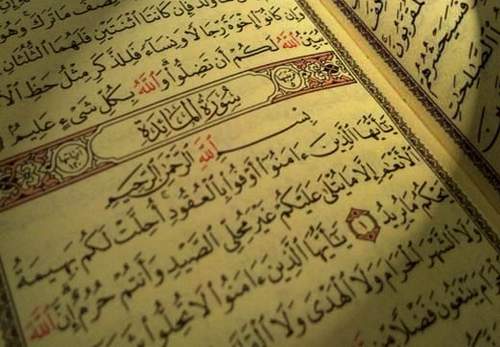 نصف ما ترك وهو
ولد فإن كانتا اثنتين فلهما الثلثان
وإن كانوا إخوة رجالا ونساء فللذكر مثل حظ الأ
يبين الله لكم أن تضلوا والله بكل شيء عليم
سورة المائدة
بسم الله الرحمن الرحيم
يأيها الذين ءامنوا أوفوا بالعقود أحلت لكم بهيمة
الأنعم إلا ما يتلى عليكم غير محلي الصيد وأنتم حرم إن الله
يحكم ما يريد ١ يأيها الذين ءامنوا لا تحلوا
ولا الشهر الحرام ولا الهدى ولا
يبتغون فضلا من
المقربون
فسيحشرهم
الصلحت